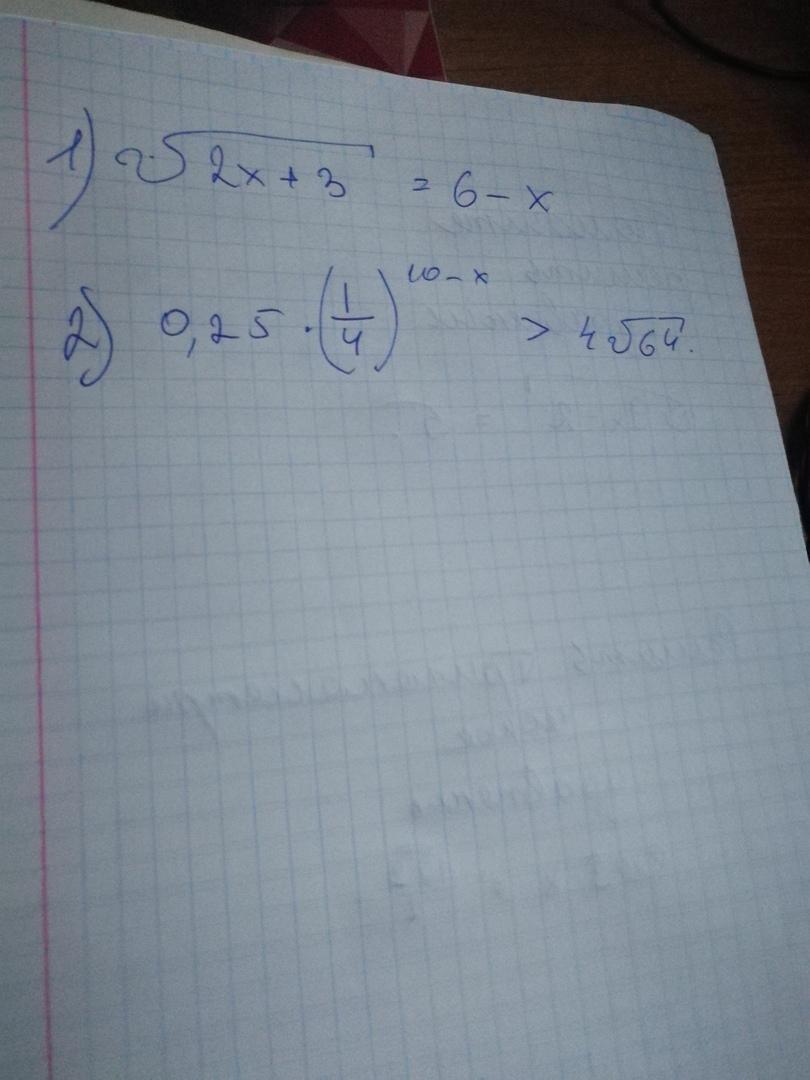 1) √2x + 3 = 6 - x
2) 0,25 · (1/4)^10-x > 4√64.